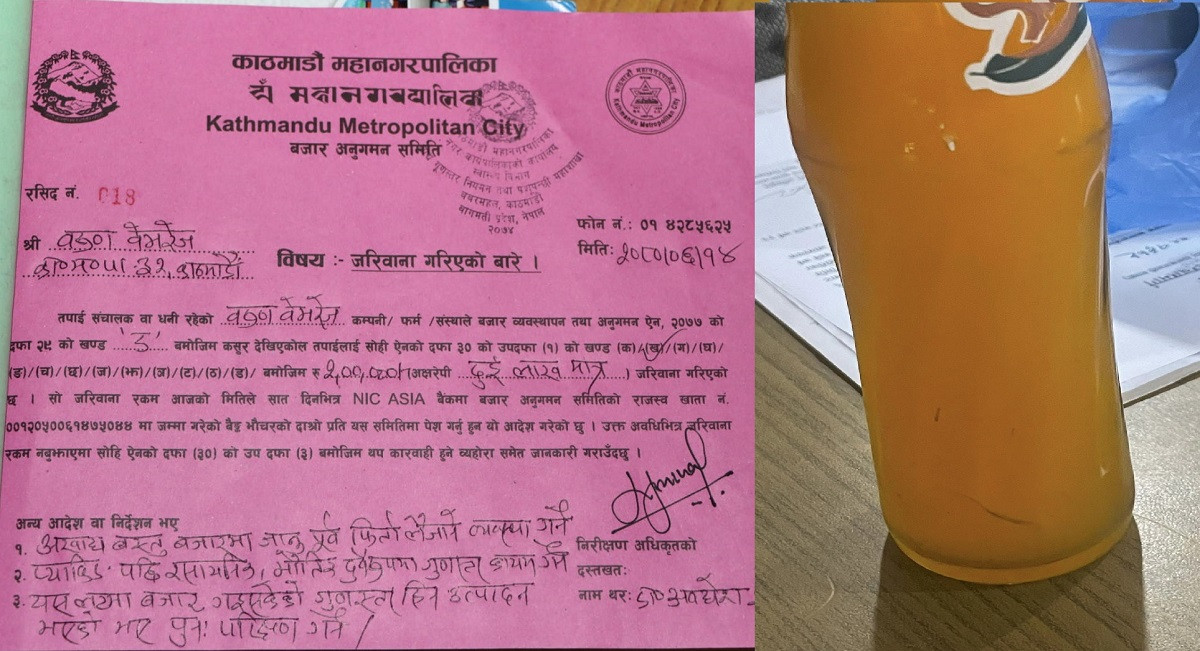 काठमाडौं महानगरपालिका
Kathmandu Metropolitan City
बजार अनुगमन समिति
काठमाडौं महानगरपालिका
नगर कार्यपालिकाको कार्यालय
स्वास्थ्य विभाग
गुणस्तर नियमन तथा पशुपन्छी महाशाखा
काठमाडौं
बागमती प्रदेश, नेपाल
२०७४
Kathmandu Metropolitan City
रसिद नं. 018
फोन नं.: ०१ ४२८५६२५
श्री वरुण वेभरेज
मिति: २०८०/०६/१४
का०म०पा ३२, काठमाडौं
विषय :- जरिवाना गरिएको बारे ।
तपाई संचालक वा धनी रहेको वरुण वेभरेज कम्पनी/ फर्म /संस्थाले बजार व्यवस्थापन तथा अनुगमन ऐन, २०७७ को
दफा २९ को खण्ड 'ड' बमोजिम कसुर देखिएकोले तपाईलाई सोही ऐनको दफा ३० को उपदफा (१) को खण्ड (क)/(ख)/(ग)/(घ)/
(ङ)/(च)/(छ)/(ज)/(झ)/(ञ)/(ट)/(ठ)/(ड)/ बमोजिम रु २,००,०००/- अक्षरेपी दुई लाख मात्र । जरिवाना गरिएको
छ । सो जरिवाना रकम आजको मितिले सात दिनभित्र NIC ASIA बैंकमा बजार अनुगमन समितिको राजस्व खाता नं.
००१२०५००६१४७५०४४ मा जम्मा गरेको बैङ्क भौचरको दाश्रो प्रति यस समितिमा पेश गर्नु हुन यो आदेश गरेको छु । उक्त अवधिभित्र जरिवाना
रकम नबुझाएमा सोहि ऐनको दफा (३०) को उप दफा (३) बमोजिम थप कारवाही हुने व्यहोरा समेत जानकारी गराउँदछु ।
अन्य आदेश वा निर्देशन भए
१. अखाद्य वस्तु बजारमा जानु पूर्व फिर्ता लैजाने व्यवस्था गर्ने
निरीक्षण अधिकृतको
२. प्याकिङ पछि रसायनिक, भौतिक दुवैरुपमा गुणस्तर कायम गर्ने
दस्तखत:
३. यस लटमा बजार गइसकेको गुणस्तर हिन उत्पादन
नाम थर: डा० अवधेश
भएको भए पुनः परिक्षण गर्ने ।